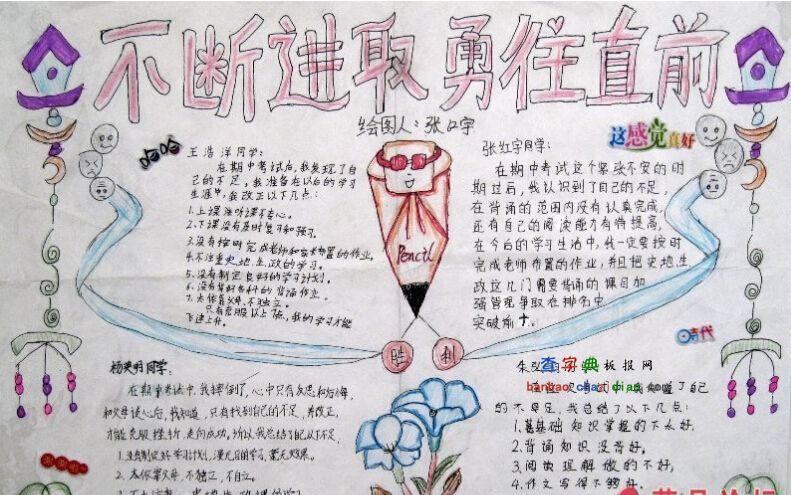 不断进取 勇往直前
绘图人：张口宇
哈哈
王浩洋同学：
在期中考试后，我发现了自
己的不足，我准备在以后的学习
生涯中，我改正以下几点：
1.上课注听课不专心。
2.下课没有及时复习和预习。
3.没有按时完成老师和家长布置的作业。
4.不注重史、地、生、政的学习。
5.没有制定良好的学习计划。
6.没有背好各科的背诵作业。
7.太依靠父母，不独立。
只有克服以上7点，我的学习才能
飞速上升。
这感觉真好
张红宇同学：
在期中考试这个紧张不安的时
期过后，我认识到了自己的不足，
在背诵的范围内没有认真完成，
还有自己的阅读能力有待提高，
在今后的学习生活中，我一定要按时
完成老师布置的作业，并且把史地生
政这几门需要背诵的课目加
强管理争取在排名中
突破前十。
Pencil
胜 利
时代
杨奕明同学：
在期中考试中，我摔倒了，心中只有反思和后悔
和父母谈心后，我知道，只有找到自己的不足，并改正，
才能克服挫折，走向成功。所以我总结了以下不足。
1.没有制定好学习计划，漫无目的学习，毫无效果。
2.太依靠父母，不独立，不自立。
查字典板报网
banbao.chazidian.com
了自己
的不足，我总结了以下几点：
1.基础知识掌握的不太好。
2.背诵知识没背好。
3.阅读理解做的不好，
4.作文写得不够好。